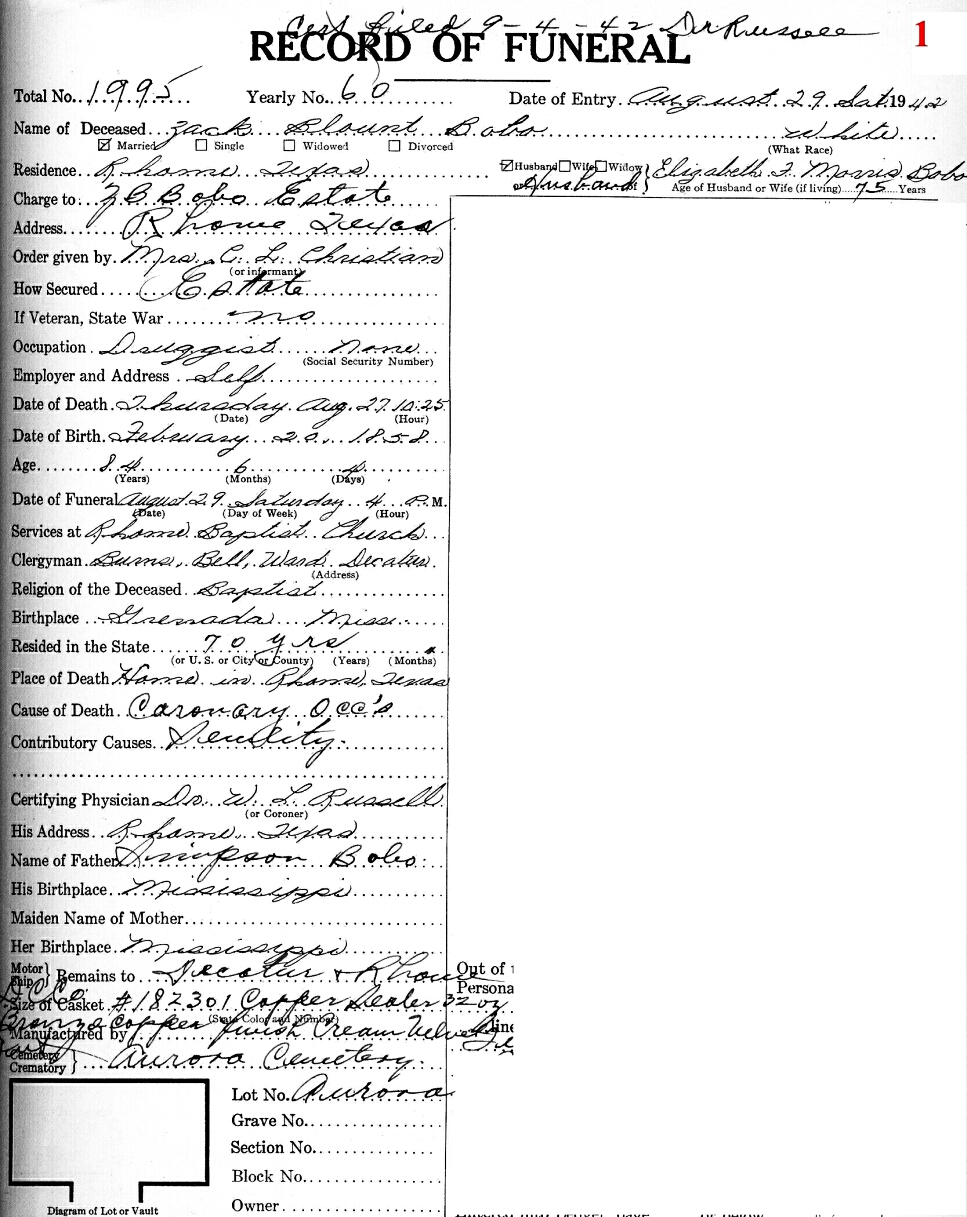 Cert filed 9-4-42 Dr Russell
1
RECORD OF FUNERAL
Total No. 1995 Yearly No. 60 Date of Entry August 29 Sat. 1942
Name of Deceased Zack Blount Bobo White
☒ Married ☐ Single ☐ Widowed ☐ Divorced (What Race)
Residence Rhome Texas ☑ Husband ☐ Wife ☐ Widow } Elizabeth F Morris Bobo
Husband Age of Husband or Wife (if living) 75 Years
Charge to: Z B Bobo Estate
Address Rhome Texas
Order given by Mrs. C. L. Christian
(or informant)
How Secured Estate
If Veteran, State War no
Occupation Druggist None
(Social Security Number)
Employer and Address Self
Date of Death Thursday Aug. 27 10:25
(Date) (Hour)
Date of Birth February 20 1858
Age 84 6 4
(Years) (Months) (Days)
Date of Funeral August 29 Saturday 4 P.M.
(Date) (Day of Week) (Hour)
Services at Rhome Baptist Church
Clergyman Burns, Bell, Ward Decatur
(Address)
Religion of the Deceased Baptist
Birthplace Grenada Miss
Resided in the State 70 yrs
(or U. S. or City or County) (Years) (Months)
Place of Death Home in Rhome, Texas
Cause of Death Caronary Occ's
Contributory Causes Senility
Certifying Physician Dr. W. L. Russell
(or Coroner)
His Address Rhome Texas
Name of Father Simpson Bobo
His Birthplace Mississippi
Maiden Name of Mother
Her Birthplace Mississippi
Motor Ship } Remains to Decatur & Rhome Out of
Persona
Size of Casket #182301 Copper Sealer 32 oz
(State Color and Number)
Bronze Copper finish Cream Velvet line
Manufactured by
Cemetery Crematory } Aurora Cemetery
Lot No. Aurora
Grave No.
Section No.
Block No.
Owner
Diagram of Lot or Vault